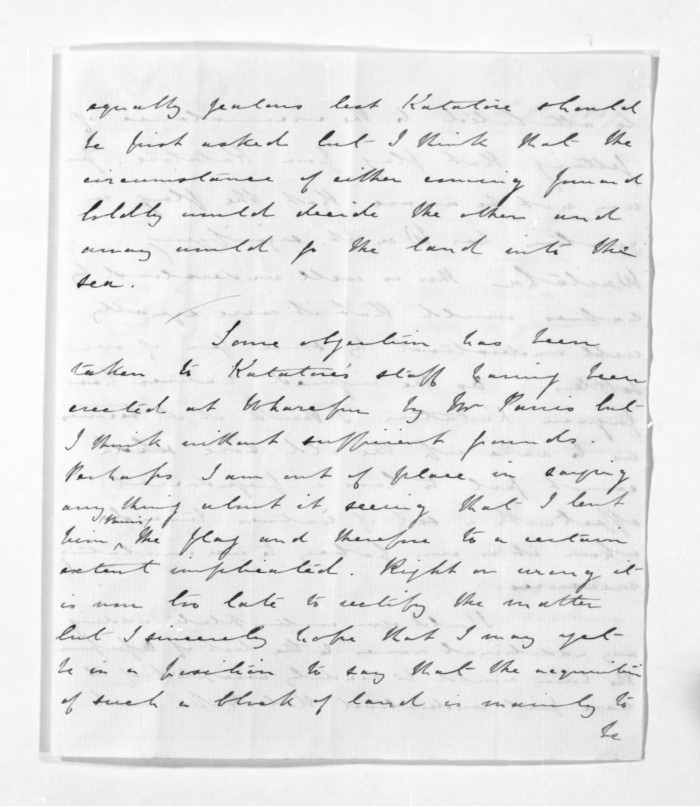 equally jealous lest Katatore should
be first asked but I think that the
circumstance of either coming forward
boldly would decide the other and
away would go the land into the
sea.
Some objection has been
taken to Katatore's staff having been
erected at Wharepu by Mr Parris but
I think without sufficient grounds.
Perhaps I am out of place in saying
any thing about it, seeing that I lent
him (Parris) the flag and therefore to a certain
extent implicated. Right or wrong it
is now too late to rectify the matter
but I sincerely hope that I may yet
be in a position to say that the acquisition
of such a block of land is mainly to
be